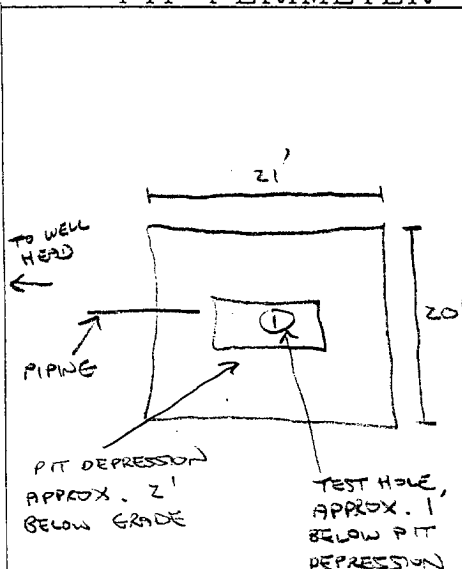 PIT PERIMETER
21'
TO WELL
HEAD
20'
①
PIPING
PIT DEPRESSION
APPROX. 2'
BELOW GRADE
TEST HOLE,
APPROX. 1
BELOW PIT
DEPRESSION